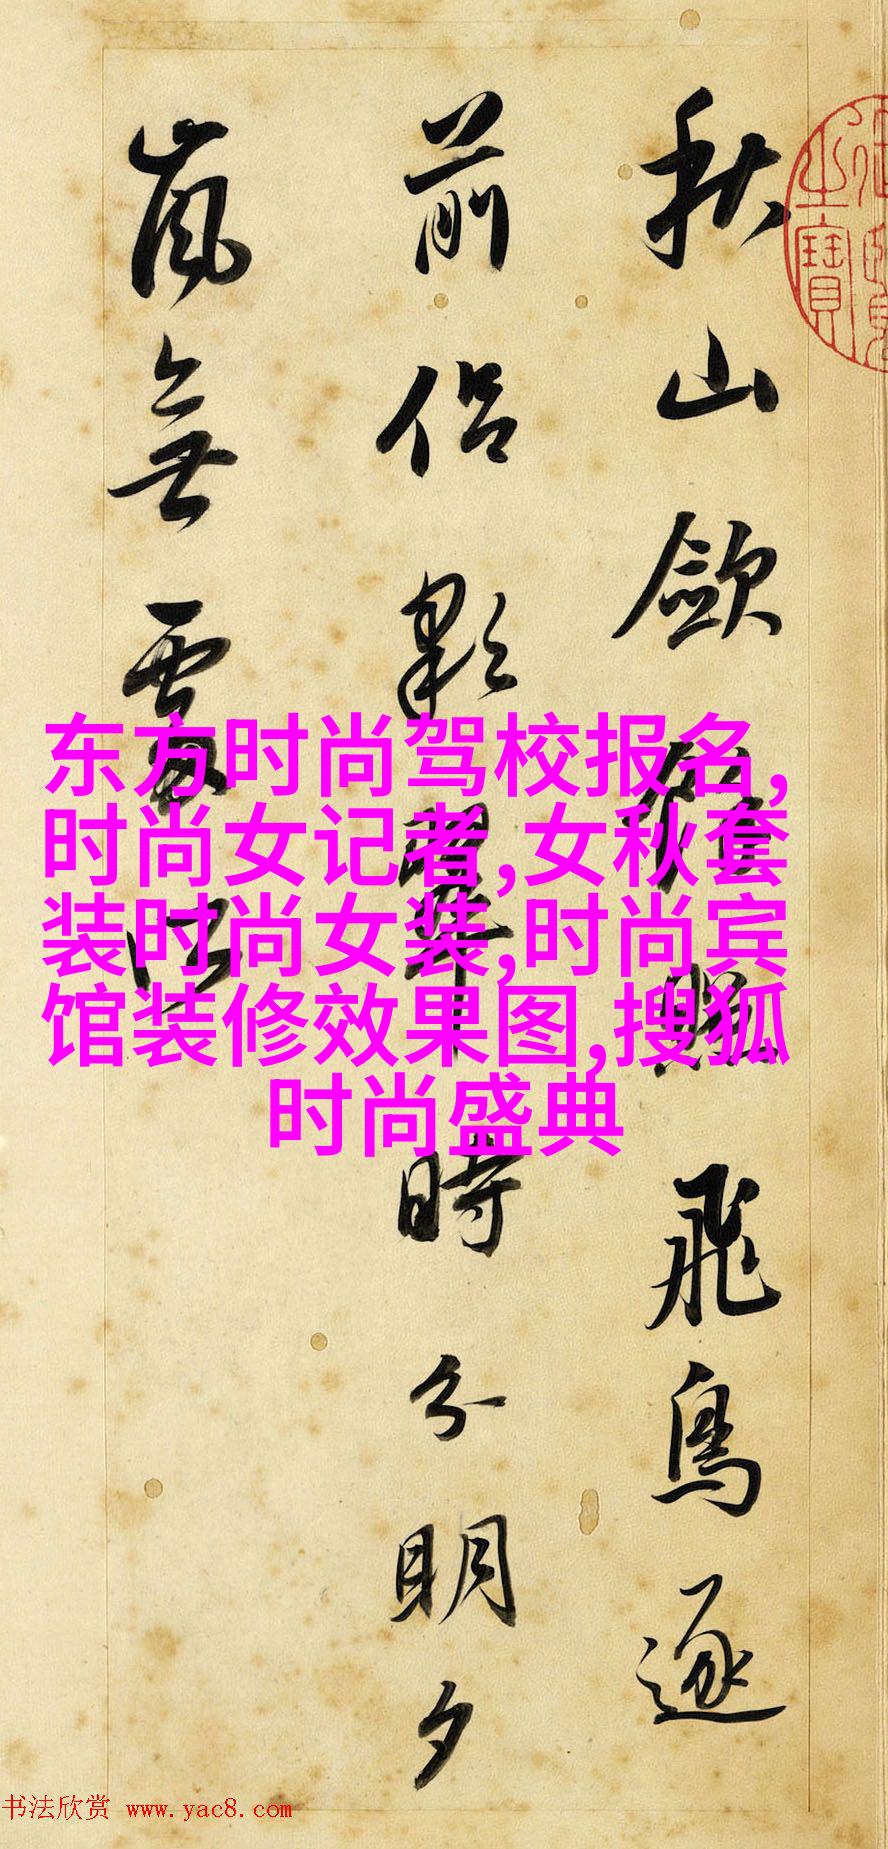 秋山歛餘照飛鳥逐
前侶彩翠時分明夕
嵐無處所
之寶
东方时尚驾校报名,
时尚女记者,女秋套
装时尚女装,时尚宾
馆装修效果图,搜狐
时尚盛典
书法欣赏 www.yac8.com